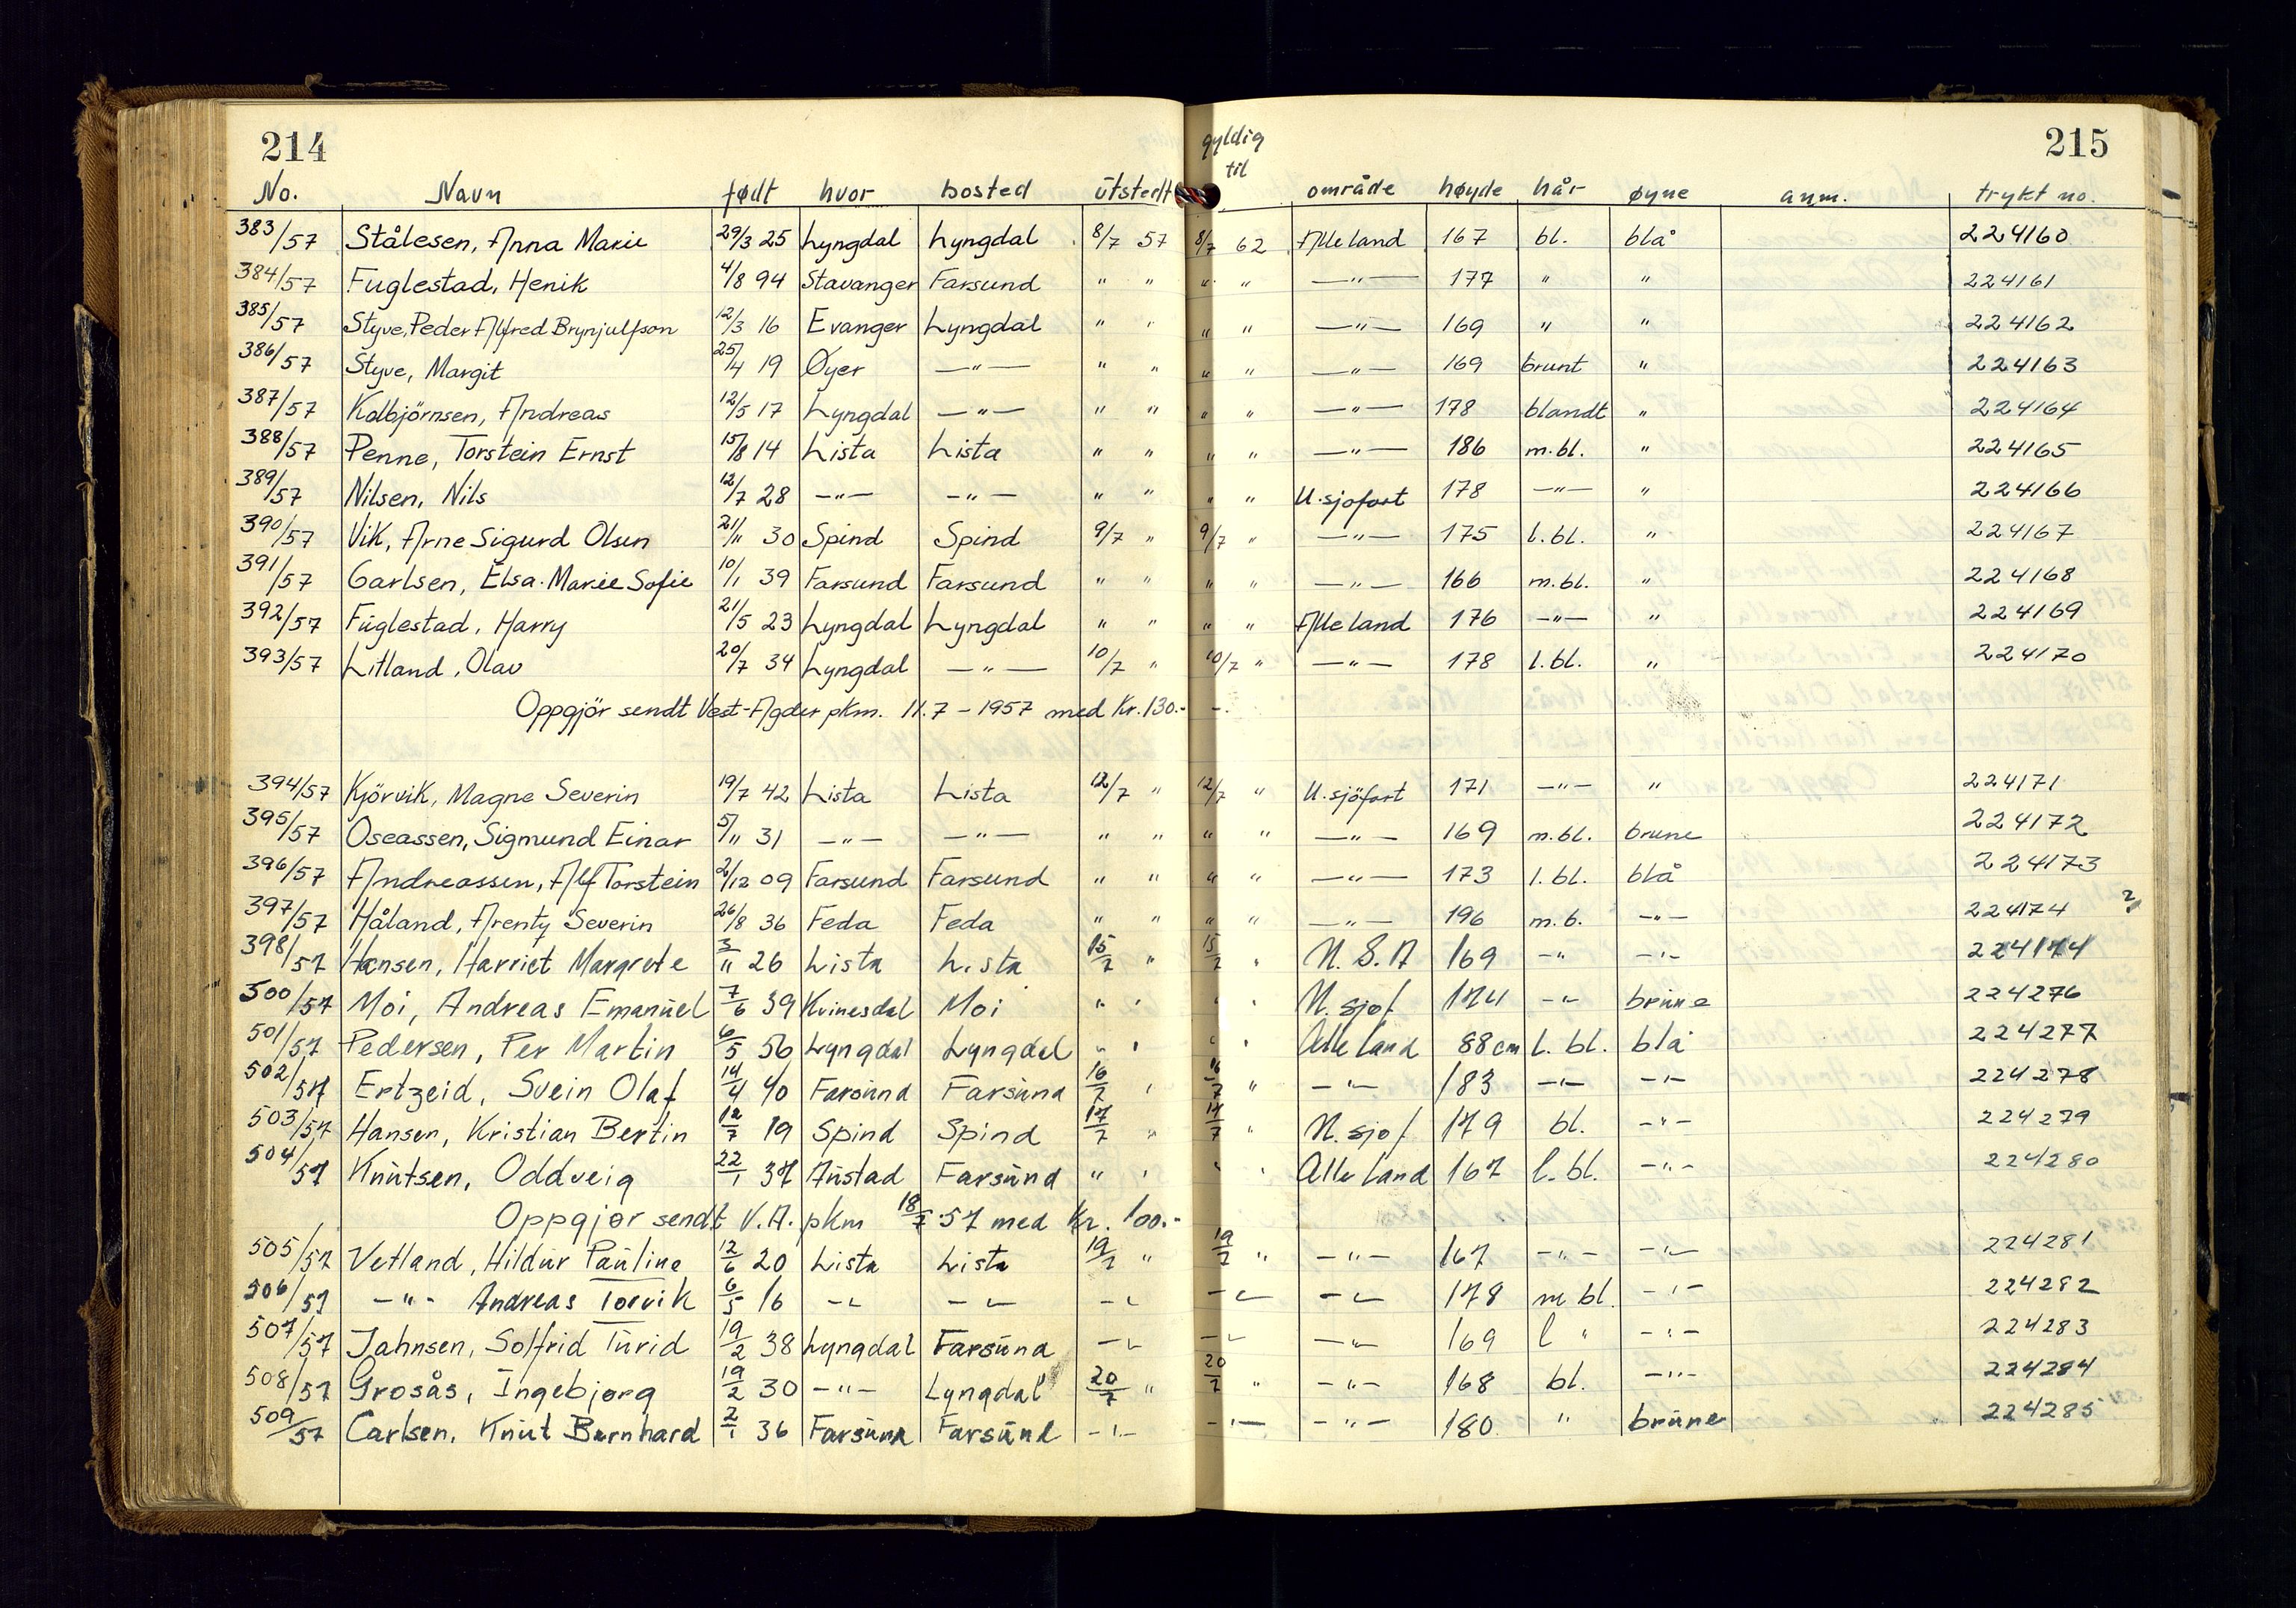 214
215
gyldig
til
No. Navn født hvor bosted utstedt område høyde hår øyne anm. trykt no.
383/57 Stålesen, Anna Marie 29/3 25 Lyngdal Lyngdal 8/7 57 8/7 62 Alle land 167 bl. blå 224160
384/57 Fuglestad, Henik 4/8 94 Stavanger Farsund " " " " —"— 177 " " 224161
385/57 Styve, Peder Alfred Brynjulfson 12/3 16 Evanger Lyngdal " " " " —"— 169 " " 224162
386/57 Styve, Margit 25/4 19 Øyer —"— " " " " —"— 169 brunt " 224163
387/57 Kolbjörnsen, Andreas 12/5 17 Lyngdal —"— " " " " —"— 178 blandt " 224164
388/57 Penne, Torstein Ernst 15/8 14 Lista Lista " " " " —"— 186 m.bl. " 224165
389/57 Nilsen, Nils 12/7 28 —"— —"— " " " " U.sjøfart 178 —"— " 224166
390/57 Vik, Arne Sigurd Olsen 21/11 30 Spind Spind 9/7 " 9/7 " —"— 175 l.bl. " 224167
391/57 Carlsen, Elsa Marie Sofie 10/1 39 Farsund Farsund " " " " —"— 166 m.bl. " 224168
392/57 Fuglestad, Harry 21/5 23 Lyngdal Lyngdal " " " " Alle land 176 —"— " 224169
393/57 Litland, Olav 20/7 34 Lyngdal —"— 10/7 " 10/7 " —"— 178 l.bl. " 224170
Oppgjör sendt Vest-Agder pkm. 11.7-1957 med Kr.130.-
394/57 Kjörvik, Magne Severin 19/7 42 Lista Lista 12/7 " 12/7 " U.sjöfart 171 —"— " 224171
395/57 Oseassen, Sigmund Einar 5/11 31 —"— —"— " " " " —"— 169 m.bl. brune 224172
396/57 Andreassen, Alf Torstein 2/12 09 Farsund Farsund " " " " —"— 173 l.bl. blå 224173
397/57 Håland, Arenty Severin 26/8 36 Feda Feda " " " " —"— 196 m.b. —"— 224174 ?
398/57 Hansen, Harriet Margrete 3/11 26 Lista Lista 15/7 " 15/7 " U.S.A 169 —" —"— 224174
500/57 Moi, Andreas Emanuel 7/6 39 Kvinesdal Moi " " " " U.sjøf 174 —"— brune 224276
501/57 Pedersen, Per Martin 6/5 56 Lyngdal Lyngdal " " " " Alle land 88 cm l. bl. blå 224277
502/57 Ertzeid, Svein Olaf 14/4 40 Farsund Farsund 16/7 " 16/7 " —"— 183 —"— —"— 224278
503/57 Hansen, Kristian Bertin 12/7 19 Spind Spind 17/7 " 17/7 " U.sjøf 179 bl. —"— 224279
504/57 Knutsen, Oddveig 22/1 37 Austad Farsund " " " " Alle land 167 l.bl. —"— 224280
Oppgjør sendt V.A. pkm 18/7.57 med Kr. 100.-
505/57 Vetland, Hildur Pauline 12/6 20 Lista Lista 19/7 " 19/7 " —"— 167 —"— —"— 224281
506/57 —"— Andreas Torvik 6/5 16 —"— —"— —"— —"— —"— 178 m bl. —"— 224282
507/57 Jahnsen, Solfrid Turid 19/2 38 Lyngdal Farsund —"— —"— —"— 169 l " —"— 224283
508/57 Grosås, Ingebjørg 19/2 30 —"— Lyngdal 20/7 " 20/7 " —"— 168 bl. —"— 224284
509/57 Carlsen, Knut Bernhard 2/1 36 Farsund Farsund —"— —"— —"— 180 " brune 224285